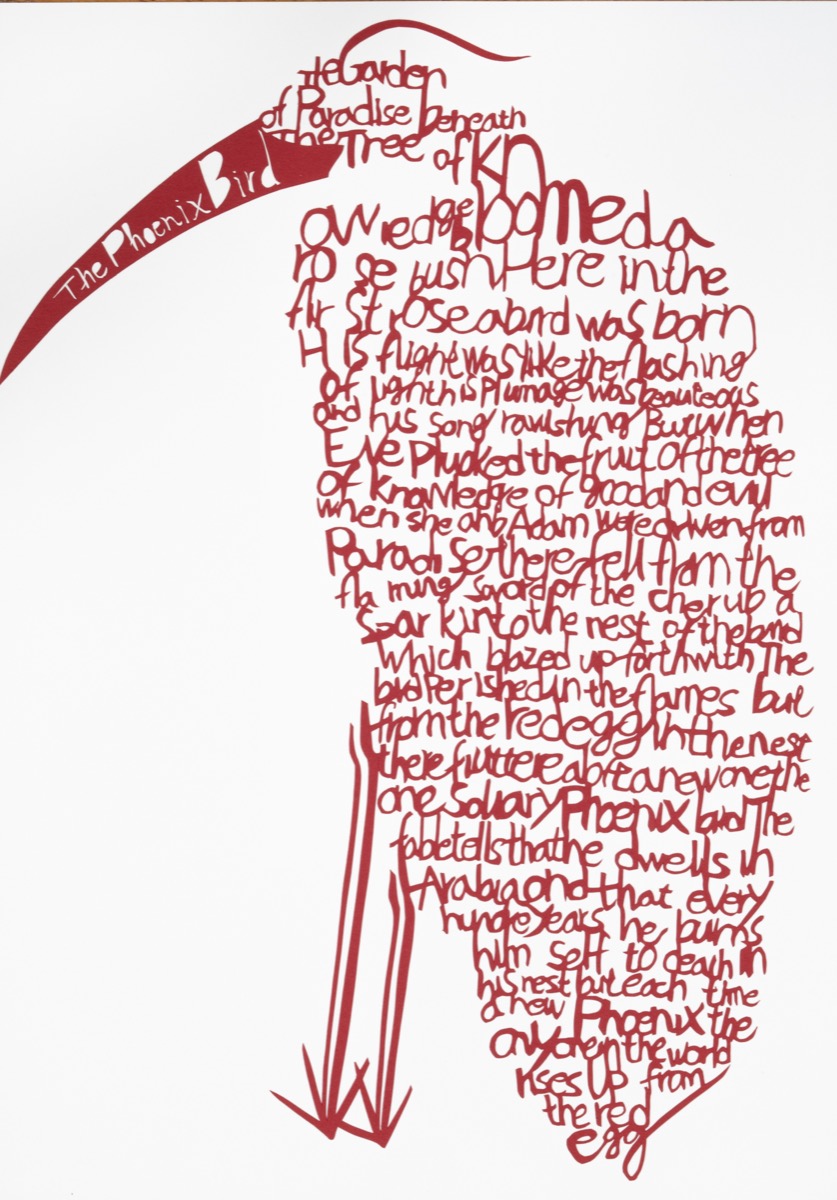 The Phoenix Bird
The Garden
of Paradise beneath
The Tree of Kn
owledge bloomed a
ro se bush Here in the
fir St rose a bird was born
H is flight was like the flashing
of light his Plumage was beauteous
and his song ravishing But when
Eve Plucked the fruit Of the tree
of knowledge of good and evil
when she and Adam were driven from
Paradi Se there fell from the
fla ming sword of the cherub a
Spar k into the nest of the bird
Which blazed up forthwith The
bird Per ished in the flames but
from the red egg in the nest
there fluttered aloft a new one the
one Solitary Phoenix bird The
fable tells that he dwells in
Arabia and that every
hundred years he burns
him self to death in
his nest but each time
a new Phoenix the
only one in the world
rises Up from
the red
egg